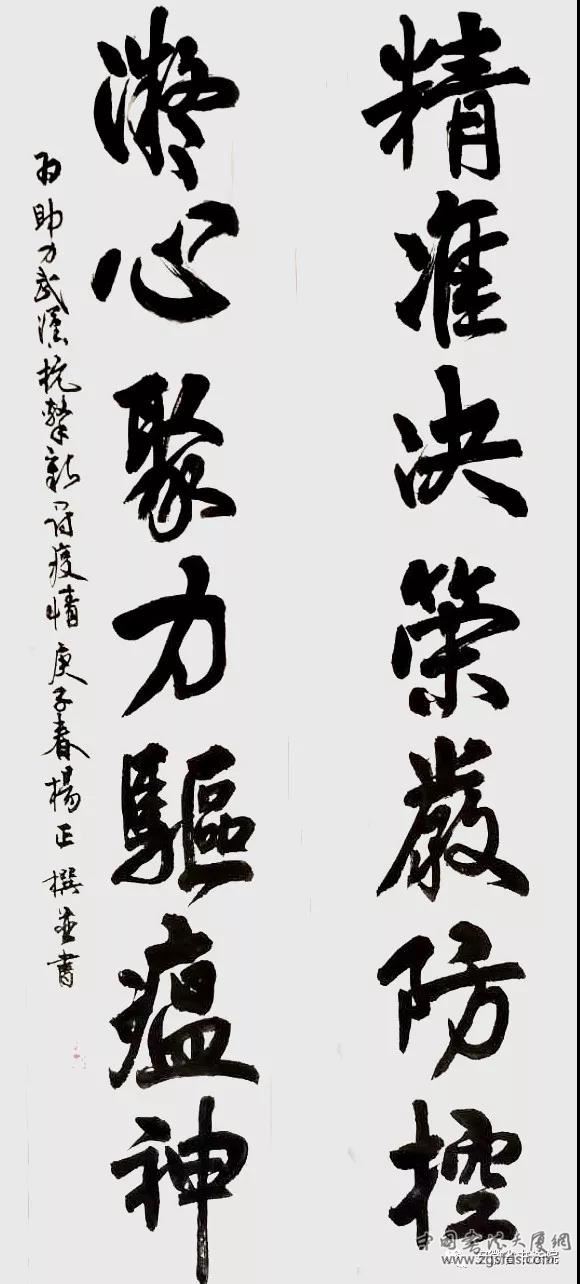 精准决策嚴防控
凝心聚力驅瘟神
為助力武漢抗擊新冠疫情庚子春楊正撰並書
中国书法大厦網
www.zgsfds.com